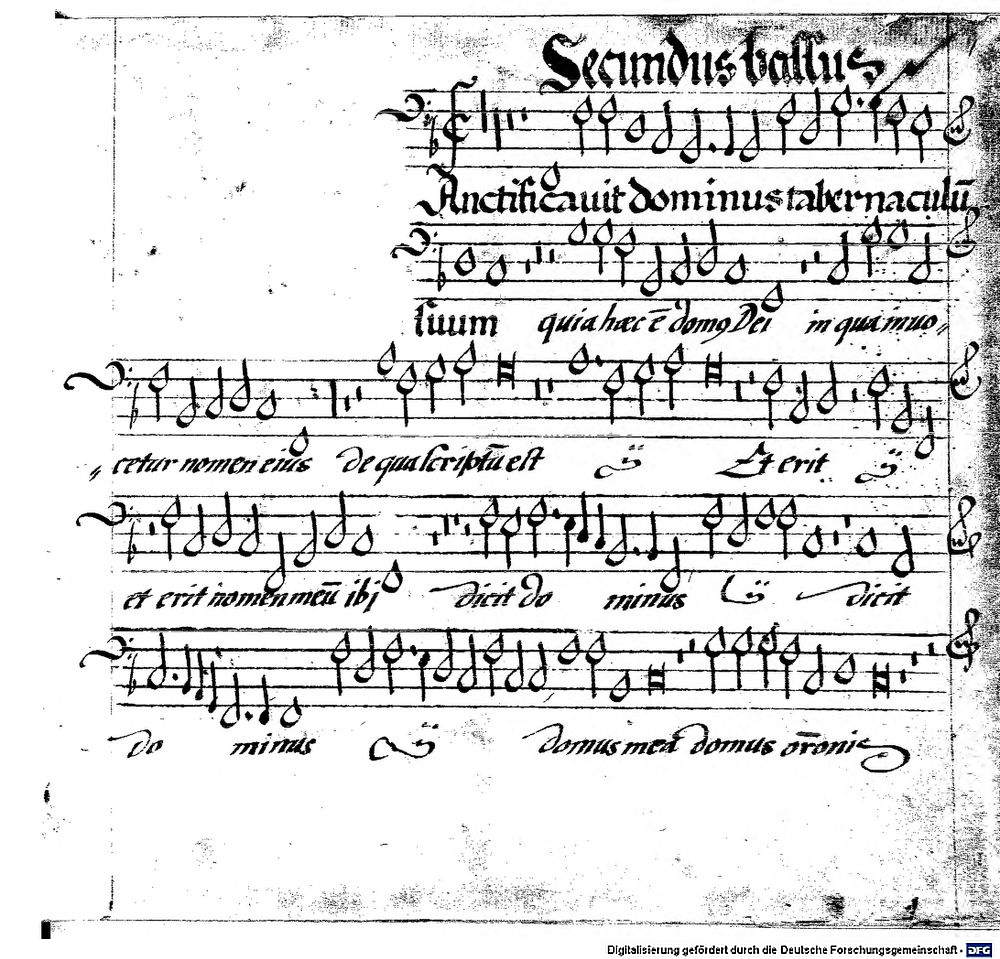 Secundus bassus
Anctificauit dominus tabernaculū
suum quia hæc ē domꝰ Dei in qua inuo„
„cetur nomen eius de qua scriptū est ij Et erit ij
et erit nomen meū ibi dicit do minus ij dicit
do minus ij domus mea domus orōnis
Digitalisierung gefördert durch die Deutsche Forschungsgemeinschaft - DFG